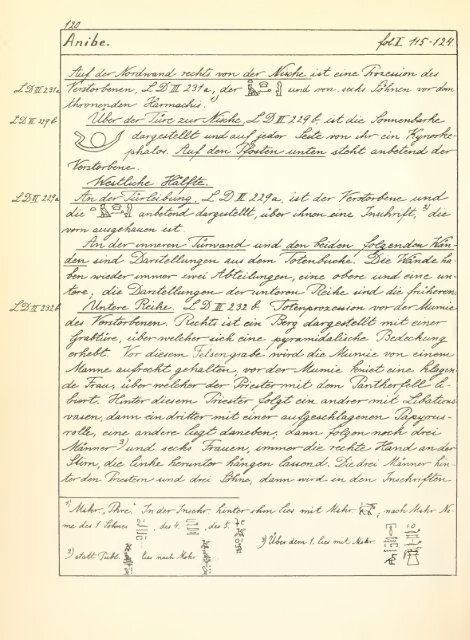 120
Anibe. fol I 115-124.
Auf der Nordwand rechts von der Nische ist eine Prozession des
LD III 231a Verstorbenen, LD III 231a, der und von sechs Söhnen vor dem
thronenden Harmachis. 1)
LD III 229b Über der Türe zur Nische, LD III 229b, ist die Sonnenbarke
dargestellt und auf jeder Seite von ihr ein Kynoke-
phalos. Auf den Pfosten unten steht anbetend der
Verstorbene.
Westliche Hälfte.
LD III 229a An der Türleibung, LD III 229a, ist der Verstorbene und
die anbetend dargestellt, über ihnen eine Inschrift, 2) die
vorn ausgehauen ist.
An der inneren Türwand und den beiden folgenden Wän-
den sind Darstellungen aus dem Totenbuche. Die Wände ha-
ben wieder immer zwei Abteilungen, eine obere und eine un-
tere; die Darstellungen der unteren Reihe sind die früheren.
LD III 232b Untere Reihe. LD III 232b. Totenprozession vor der Mumie
des Verstorbenen. Rechts ist ein Berg dargestellt mit einer
Grabtüre, über welcher sich eine pyramidalische Bedeckung
erhebt. Vor diesem Felsengrabe wird die Mumie von einem
Manne aufrecht gehalten, vor der Mumie kniet eine klagen-
de Frau, über welcher der Priester mit dem Pantherfell li-
biert. Hinter diesem Priester folgt ein andrer mit Libations-
vasen, dann ein dritter mit einer aufgeschlagenen Papyrus-
rolle, eine andere liegt daneben; dann folgen noch drei
Männer 3) und sechs Frauen, immer die rechte Hand an der
Stirn, die linke herunter hängen lassend. Die drei Männer hin-
ter den Priestern sind drei Söhne, dann wird in den Inschriften
1) Mskr. In der Inschr. hinter ihm lies mit Mskr. , nach Mskr. Na-
me des 1. Sohnes , des 4. , des 5.
2) statt Publ. lies nach Mskr.
3) Über dem 1. lies mit Mskr.